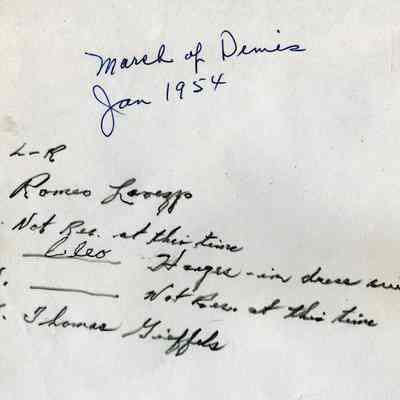 March of Dimes
Jan 1954
L-R
Romeo
Not Rec. at this time
Cleo Hauges - in dress
Not Rec. at this time
Thomas Gieffels